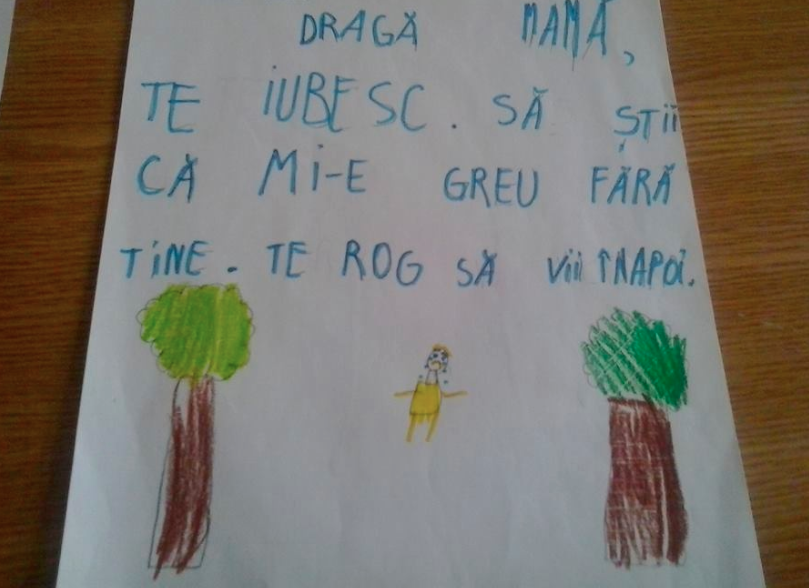 DRAGĂ MAMĂ,
TE iUBESC. SĂ ȘTii
CĂ Mi-E GREU FĂRĂ
TiNE. TE ROG SĂ Vii ÎNAPOi.